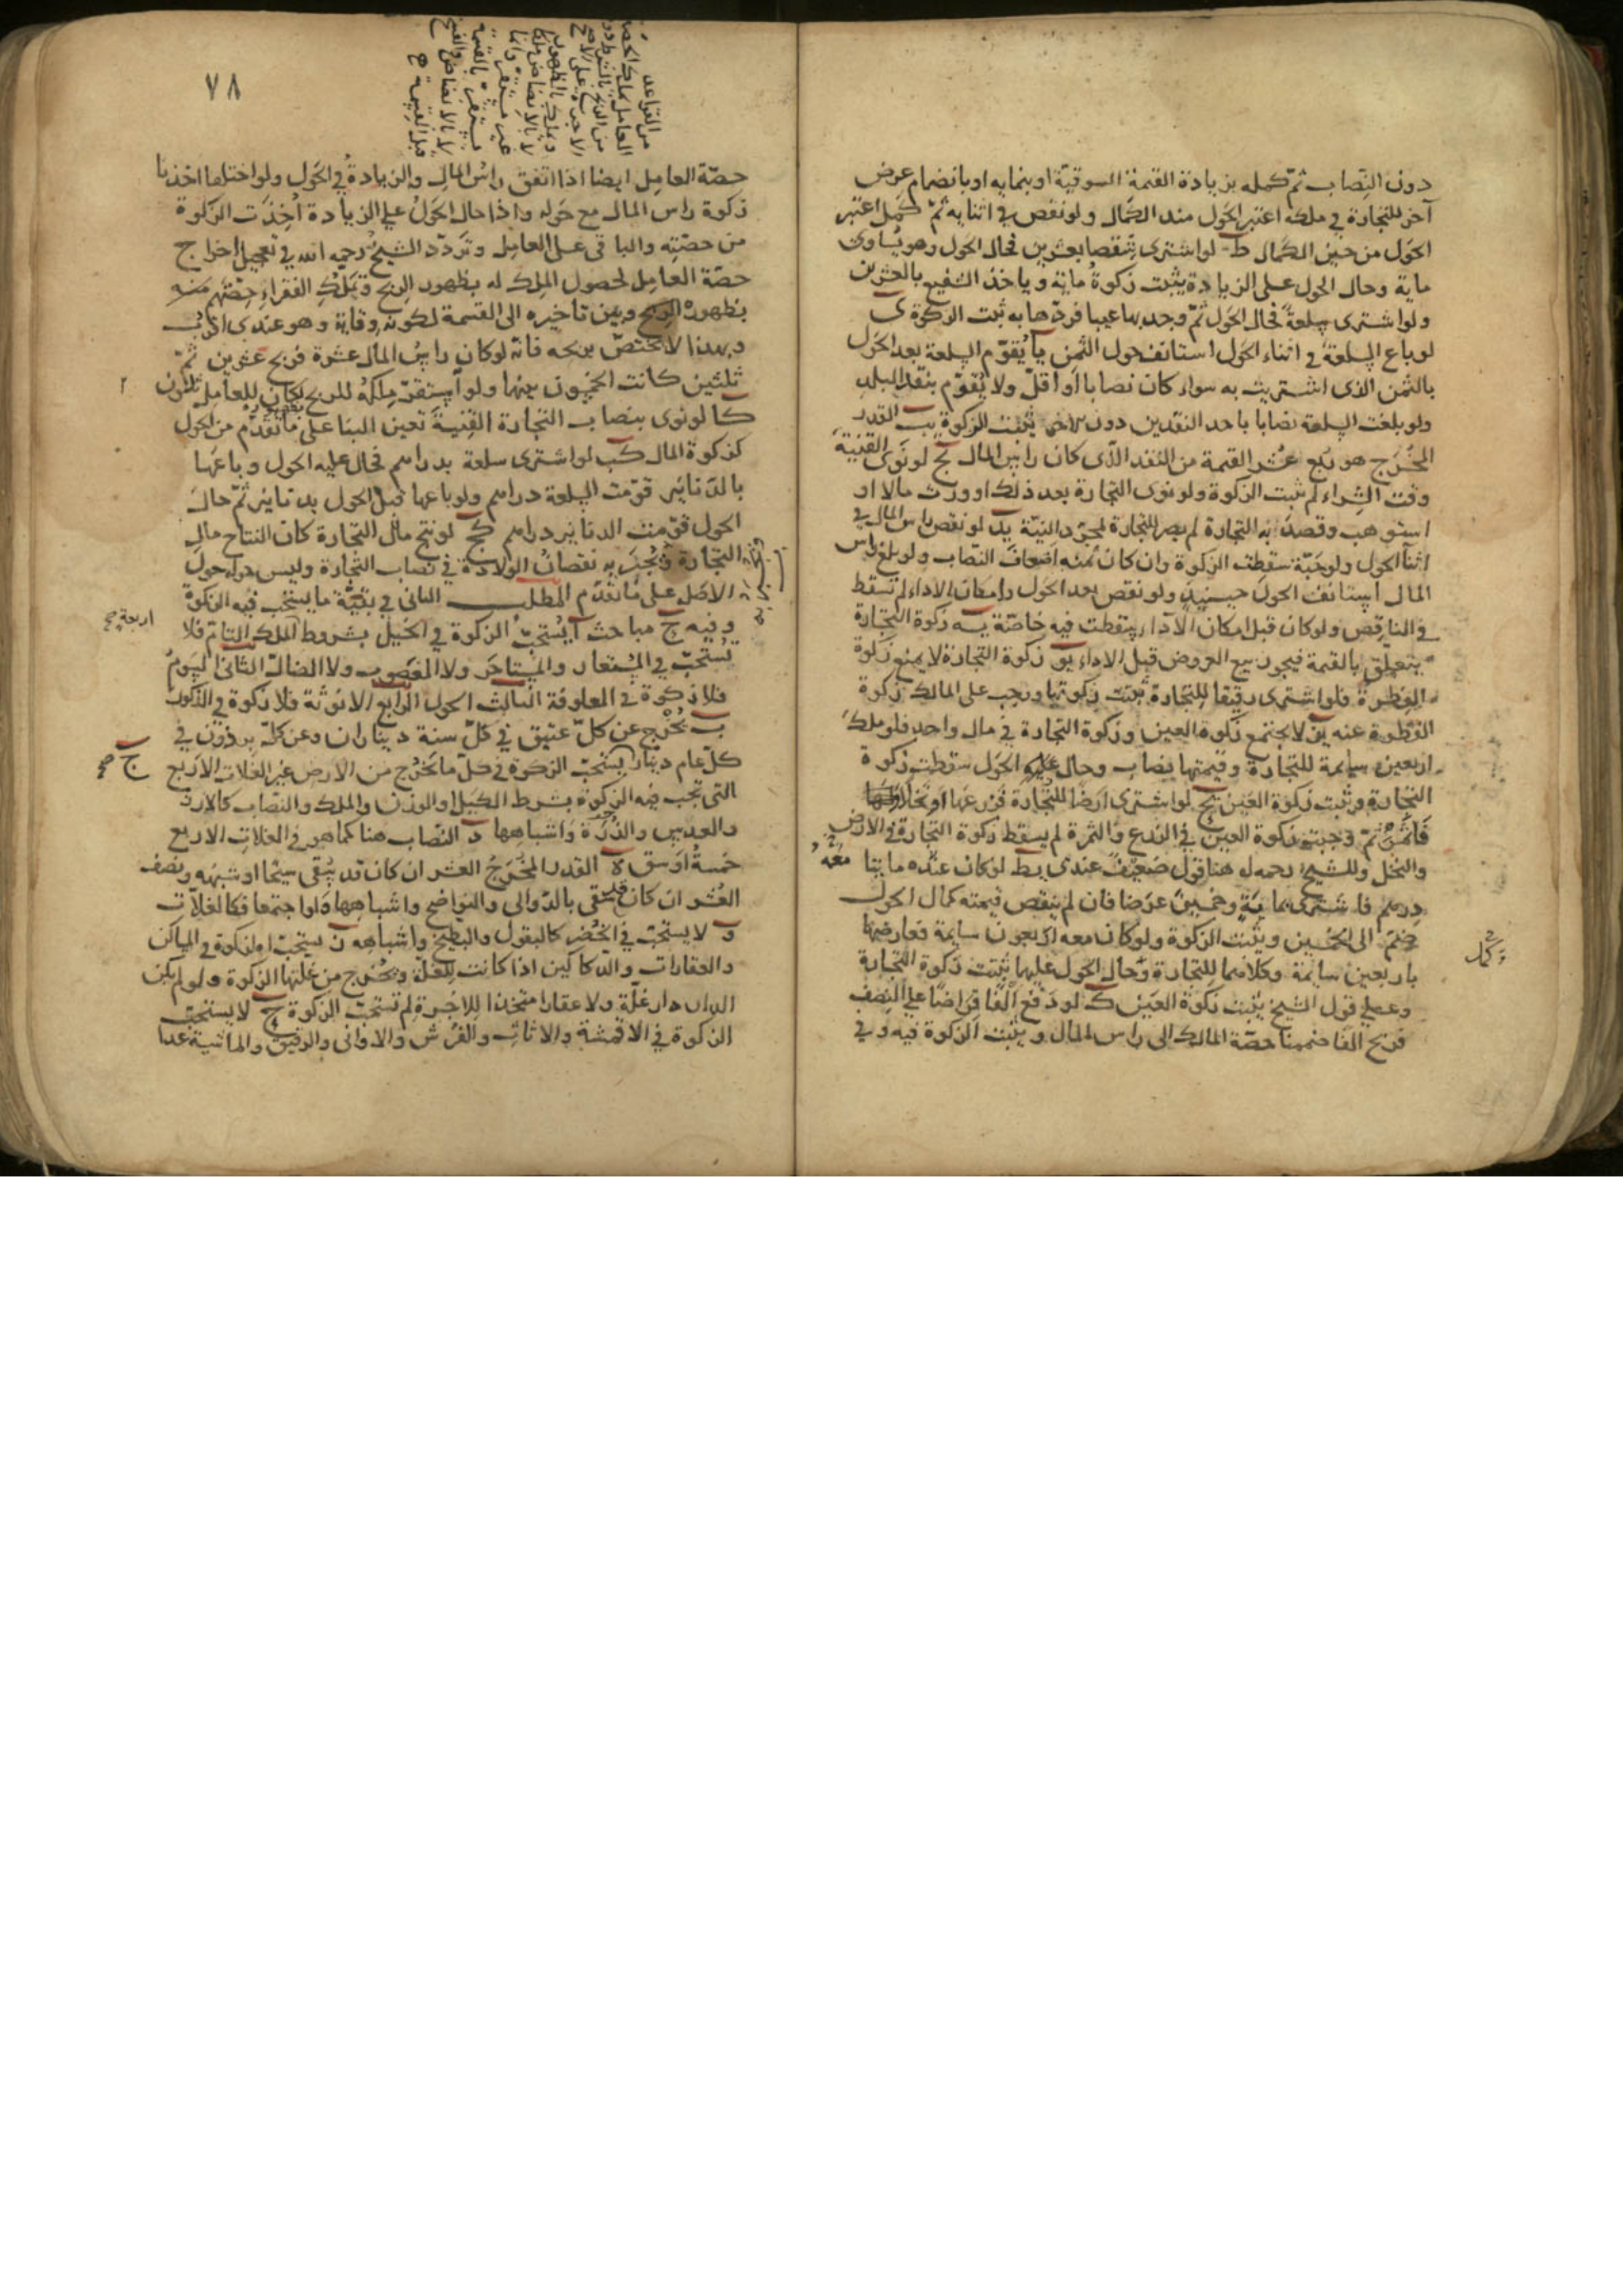 دون النصاب ثم كمله بزيادة القيمة السوقية او بنمايه او بانضمام عرض
آخر للتجارة في ملكه اعتبر الحول منذ الكمال ولو نقص في اثنايه ثم كمل اعتبر
الحول من حين الكمال ط لو اشترى شقصا بعشرين فحال الحول وهو يساوى
ماية وحال الحول على الزيادة يثبت زكوة ماية وياخذ الشفيع بالعشرين
ولو اشترى سلعة فحال الحول ثم وجد بها عيبا فردها به ثبت الزكوة ى
لو باع السلعة في اثناء الحول استانف حول الثمن يا يقوم السلعة بعد الحول
بالثمن الذى اشتريت به سواء كان نصابا او اقل ولا يقوم بنقد البلد
ولو بلغت السلعة نصابا باحد النقدين دون الاخر ثبتت الزكوة يب القدر
المخرج هو ربع عشر القيمة من النقد الذى كان راس المال يج لو نوى القنية
وقت الشراء لم يثبت الزكوة ولو نوى التجارة بعد ذلك او ورث مالا او
استوهب وقصد به التجارة لم يصر للتجارة بمجرد النية يد لو نقص راس المال في
اثنا الحول ولو حبة سقطت الزكوة وان كان ثمنه اضعاف النصاب ولو بلغ راس
المال استانف الحول حينيذ ولو نقص بعد الحول وامكان الاداء لم تسقط
في الناقص ولو كان قبل امكان الاداء سقطت فيه خاصة يه زكوة التجارة
يتعلق بالقيمة فيجوز بيع العروض قبل الاداء يو زكوة التجارة لا يمنع زكوة
الفطرة فلو اشترى رقيقا للتجارة ثبتت زكوتها ويجب على المالك زكوة
الفطرة عنه يز لا يجتمع زكوة العين وزكوة التجارة في مال واحد فلو ملك
اربعين سايمة للتجارة وقيمتها نصاب وحال عليه الحول سقطت زكوة
التجارة وثبت زكوة العين يح لو اشترى ارضا للتجارة فزرعها او نخلا
فاثمر ثم وجبت زكوة العين في الزرع والثمرة لم يسقط زكوة التجارة في الارض
والنخل وللشيخ رحمه الله هنا قول ضعيف عندى يط لو كان عنده مايتا
درهم فاشترى بماية وخمسين عرضا فان لم ينقص قيمته كمال الحول
ضم الى الخمسين ويثبت الزكوة ولو كان معه اربعون سايمة فعارضها
باربعين سايمة وكلاهما للتجارة وحال الحول عليها ثبتت زكوة التجارة
وعلى قول الشيخ يثبت زكوة العين ك لو دفع الفا قراضا على النصف
فربح الفا ضممنا حصة المالك الى راس المال ويثبت الزكوة فيه وفي
٧٨
من القواعد
حصة العامل ايضا اذا اتفق راس المال والزيادة في الحول ولو اختلفا اخذنا
زكوة راس المال مع حوله واذا حال الحول على الزيادة اخذت الزكوة
من حصته والباقى على العامل وتردد الشيخ رحمه الله في تعجيل اخراج
حصة العامل لحصول الملك له بظهور الربح وتملك الفقراء حصتهم منه
بظهوره وبين تاخيره الى القسمة لكونه وقاية وهو عندى اقرب
وبهذا لا يختص بربحه فانه لو كان راس المال عشرة فربح عشرين ثم
ثلثين كانت الخمسون بينها ولو استقر ملكه للربح لكان للعامل ثلثون
كا لو نوى بنصاب التجارة القنية تعين البنا على ما تقدم من الحول
كزكوة المال كب لو اشترى سلعة بدراهم فحال عليه الحول وباعها
بالدنانير قومت السلعة دراهم ولو باعها قبل الحول بدنانير ثم حال
الحول قومت الدنانير دراهم كج لو نتج مال التجارة كان النتاج مال
التجارة ويجبر به نقصان الولادة في نصاب التجارة وليس حوله حول
الاصل على ما تقدم المطلب الثانى في بقية ما يستحب فيه الزكوة
اربعة صح
وفيه ج مباحث ا يستحب الزكوة في الخيل بشروط الملك التام فلا
تستحب في المستعار والمستاجر ولا المغصوب ولا الضال الثانى السوم
فلا زكوة في المعلوفة الثالث الحول الرابع الانوثة فلا زكوة في الذكور
ب يخرج عن كل عتيق في كل سنة ديناران وعن كل برذون في
كل عام دينار يستحب الزكوة في كل ما يخرج من الارض غير الغلات الاربع
ج صح
التى تجب فيه الزكوة بشرط الكيل او الوزن والملك والنصاب كالارز
والعدس والذرة واشباهها د النصاب هنا كما هو في الغلات الاربع
خمسة اوسق ه القدر المخرج العشر ان كان قد يسقى سيحا او شبهه ونصف
العشر ان كان قد سقى بالدوالى والنواضح واشباهها ولو اجتمعا فكالغلات
و لا يستحب في الخضر كالبقول والبطيخ واشباهه ز يستحب الزكوة في المساكن
والعقارات والدكاكين اذا كانت للغلة ويخرج من غلتها الزكوة ولو لم يكن
الدار دار غلة ولا عقار متخذا للاجرة لم تستحب الزكوة ح لا يستحب
الزكوة في الاقمشة والاثاث والفرش والاوانى والرقيق والماشية عدا